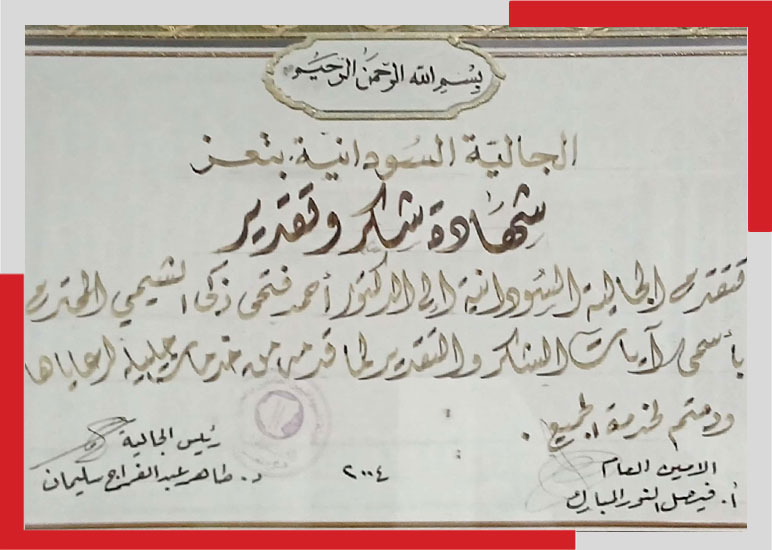 بسم الله الرحمن الرحيم
الجالية السودانية بتعز
شهادة شكر وتقدير
تتقدم الجالية السودانية الى الدكتور أحمد فتحى زكى الشيمي المحترم
بأسمى آيات الشكر والتقدير لما قدمه من خدمات جليلة لرعاياها
ودمتم لخدمة الجميع .
رئيس الجالية
د. طاهر عبد الفراج سليمان
٢٠٠٤
الامين العام
أ. فيصل النور المبارك